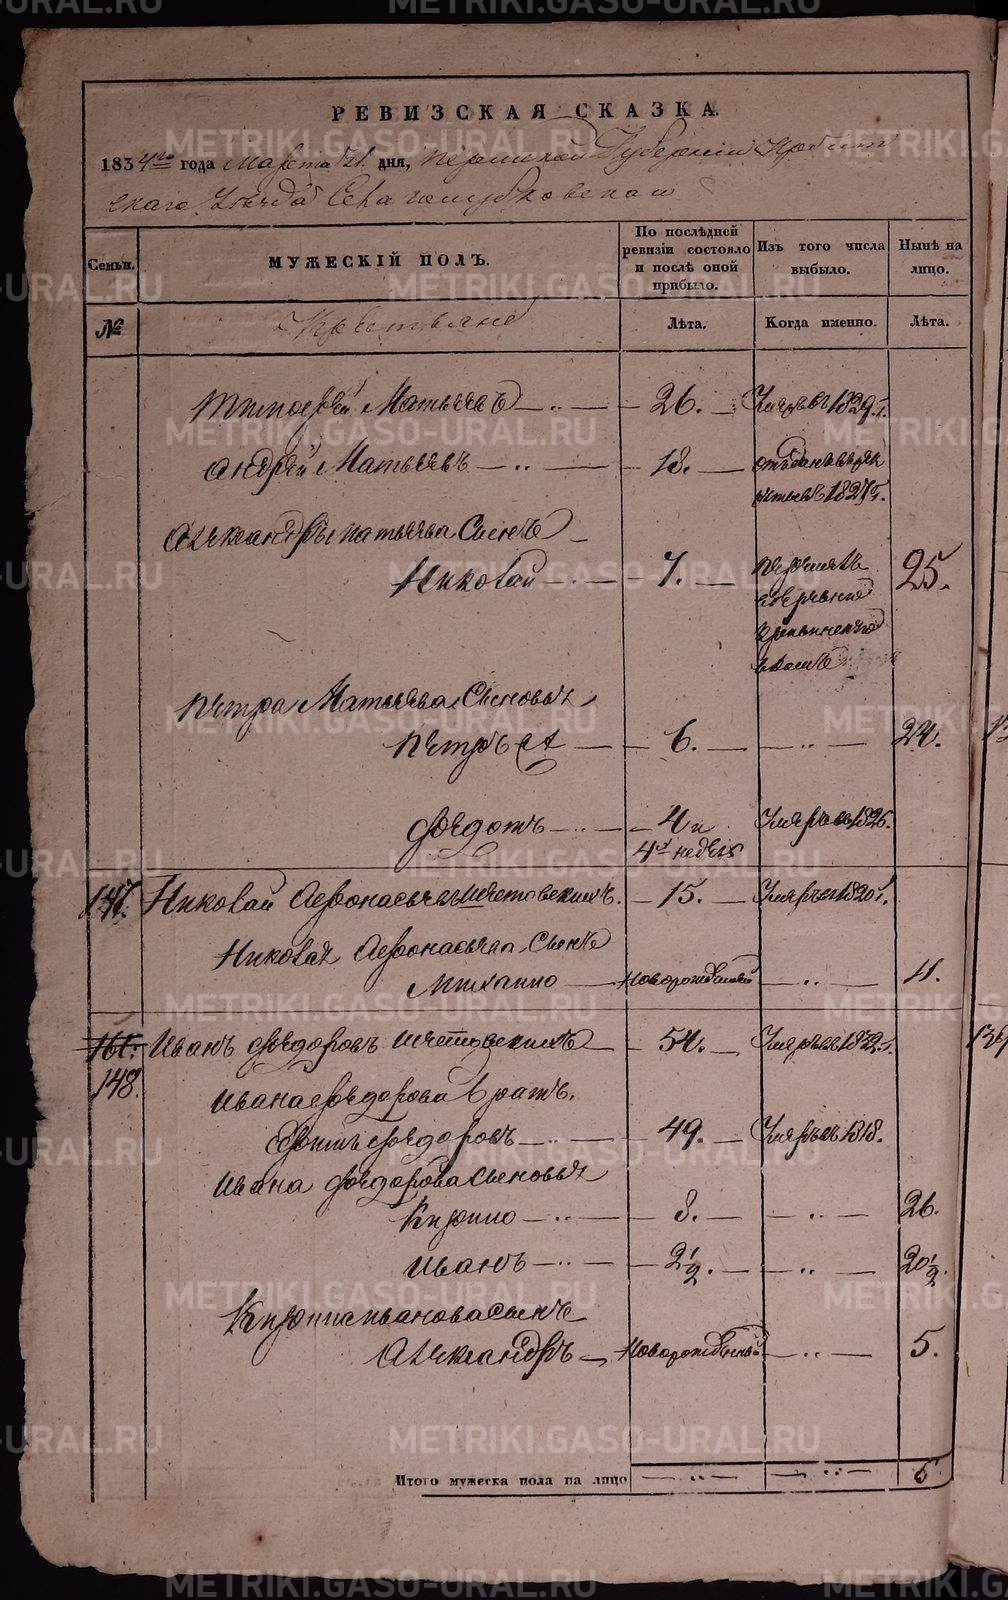 РЕВИЗСКАЯ СКАЗКА.
1834го года Марта 21. дня, Пермской Губернии Ирбит
скаго Уезда Села голубковскаго
Семьи.
МУЖЕСКІЙ ПОЛЪ.
По послѣдней ревизіи состояло и послѣ оной прибыло.
Изъ того числа выбыло.
Нынѣ на лицо.
№
Крестьяне
Лѣта.
Когда именно.
Лѣта.
Тимофей Матвеевъ — „ — 26. — Умре въ 1829г.
Андрей Матвеевъ — „ — 18. — отданъ в рек
руты въ 1827г.
Александры Матвеева Сынъ
Николай — 7. — 25.
Петра Матвеева Сыновья
Петръ — 6. — „ — 24.
Федотъ — „ — 4 и Умре въ 1826.
4ре недели
147. Николай Афонасьевъ Шетовскихъ. — 15. — Умре въ 1820г.
Николая Афонасьева Сынъ
Михаило — Новорожденный — „ — 11.
148. Иванъ Федоровъ Шетовскихъ — 54. — Умре въ 1832г.
Ивана Федорова братъ.
Федоровъ — „ — 49. — Умре въ 1818.
Ивана Федорова Сыновья
Кирило — „ — 8. — „ — 26.
Иванъ — „ — 2½. — „ — 20½.
Кирила Иванова Сынъ
Александръ — Новорожденный — „ — 5.
Итого мужеска пола на лицо — „ — — „ — 5.
METRIKI.GASO-URAL.RU